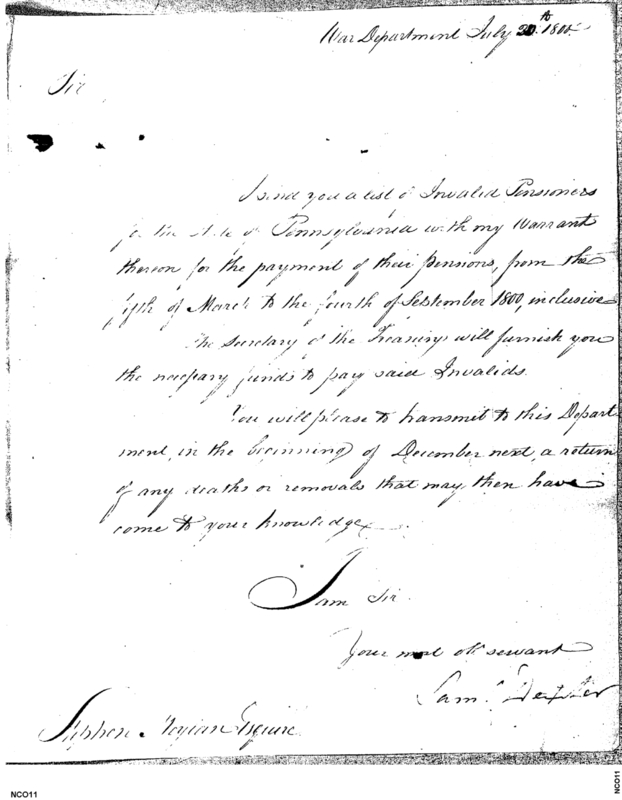 War Department July 20th 1800.
Sir
I send you a list of Invalid Pensioners
for the state of Pennsylvania with my Warrant
thereon for the payment of their pensions, from the
fifth of March to the fourth of September 1800, inclusive
The Secretary of the Treasury will furnish you
the necessary funds to pay said Invalids.
You will please to transmit to this Depart-
ment, in the beginning of December next, a return
of any deaths or removals that may then have
come to your knowledge.
I am Sir
Your most obt servant
Saml Dexter
Stephen Moylan Esquire
NCO11
NCO11